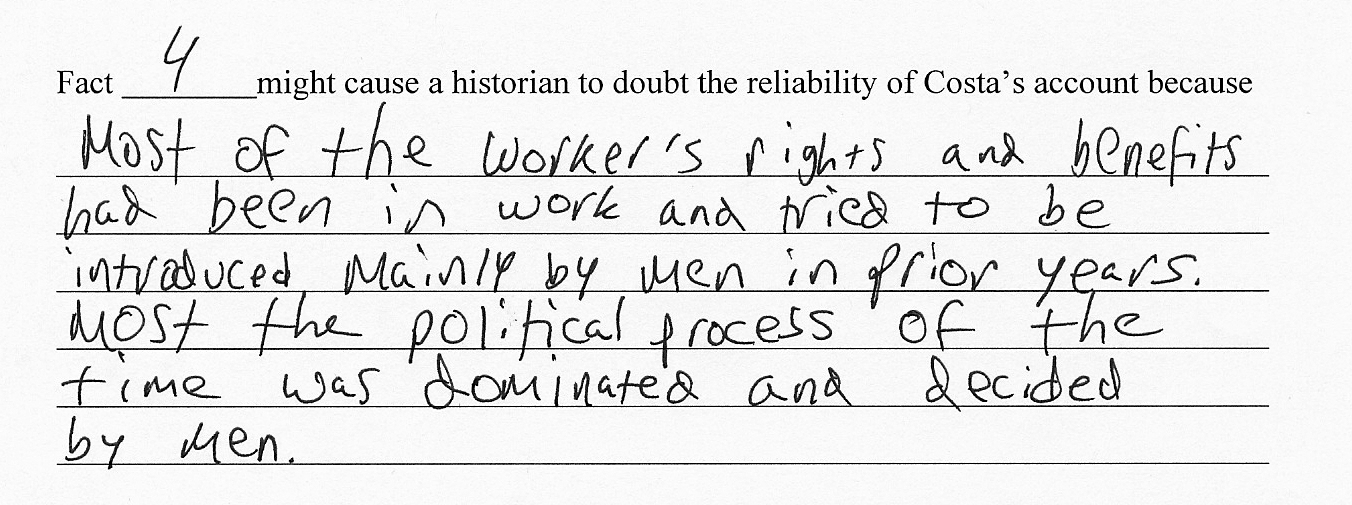 Fact 4 might cause a historian to doubt the reliability of Costa's account because
Most of the worker's rights and benefits
had been in work and tried to be
introduced mainly by men in prior years.
Most the political process of the
time was dominated and decided
by men.